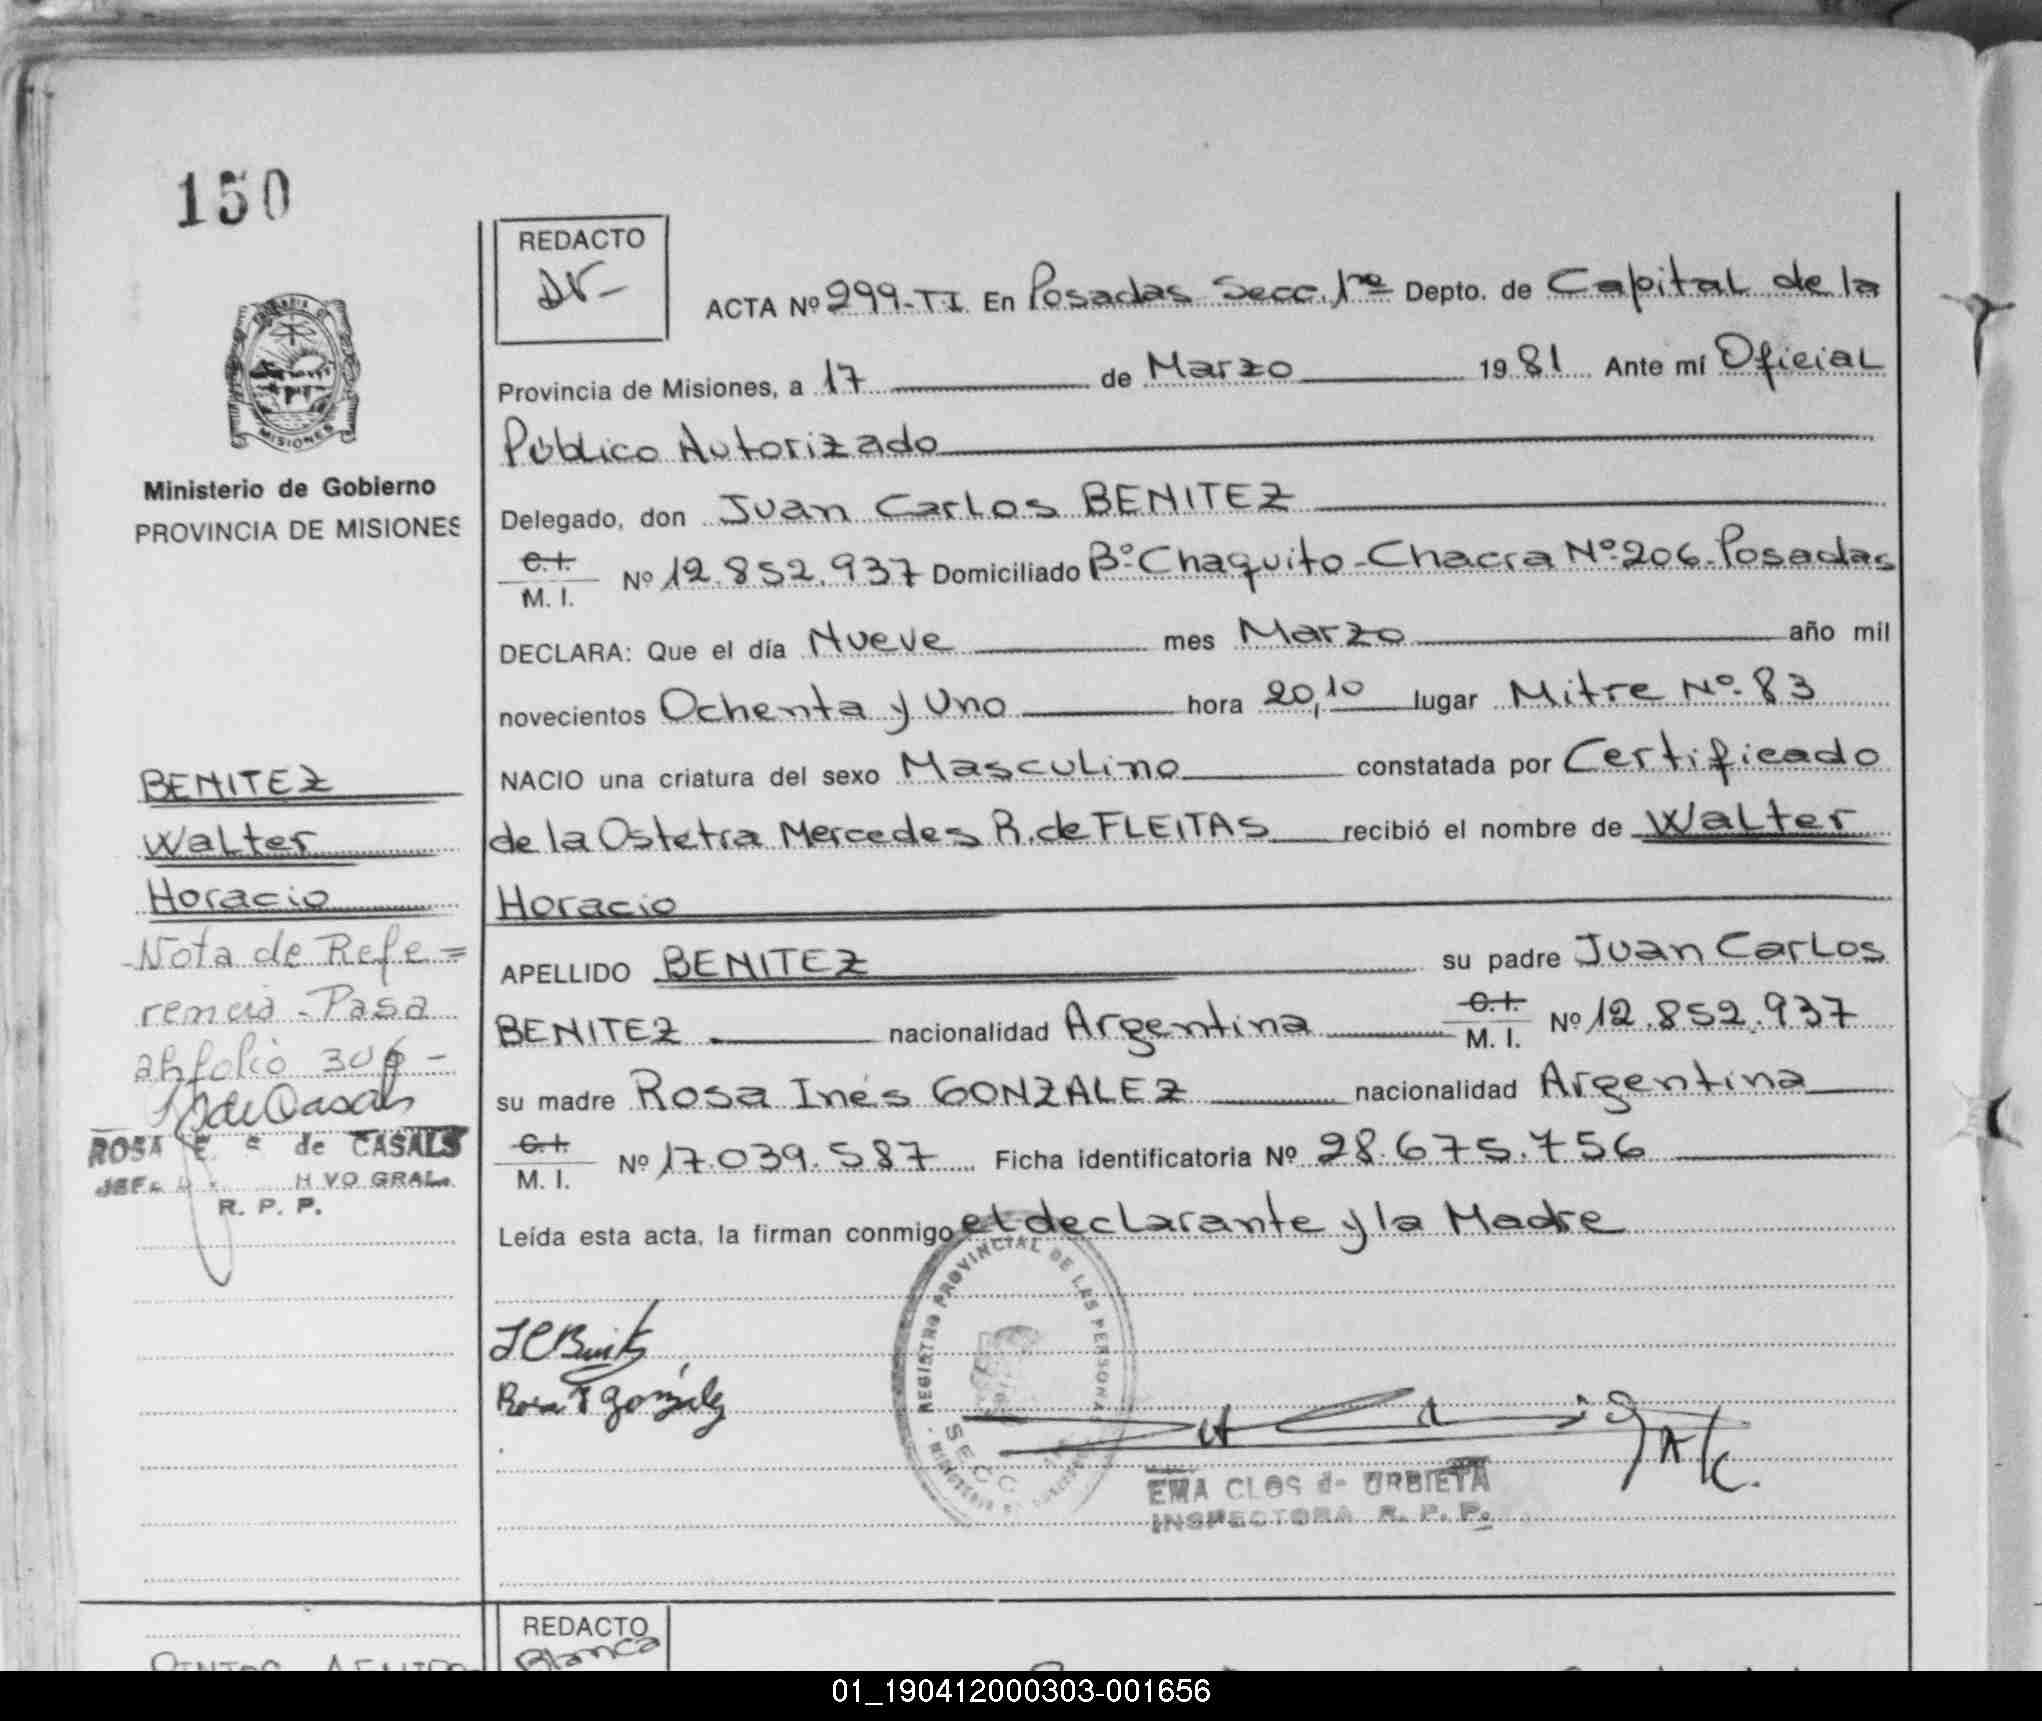 150
REDACTO
ACTA Nº 299-TI En Posadas Secc. 1ra Depto. de Capital de la
Provincia de Misiones, a 17 de Marzo 1981 Ante mí Oficial
Público Autorizado
MISIONES
Ministerio de Gobierno
PROVINCIA DE MISIONES
Delegado, don Juan Carlos BENITEZ
C.I.
M. I. Nº 12.852.937 Domiciliado Bº Chaquito - Chacra Nº 206 - Posadas
DECLARA: Que el día Nueve mes Marzo año mil
novecientos Ochenta y Uno hora 20,10 lugar Mitre Nº 83
NACIO una criatura del sexo Masculino constatada por Certificado
de la Ostetra Mercedes R. de FLEITAS recibió el nombre de Walter
Horacio
APELLIDO BENITEZ su padre Juan Carlos
BENITEZ nacionalidad Argentina C.I. M. I. Nº 12.852.937
su madre Rosa Inés GONZALEZ nacionalidad Argentina
C.I.
M. I. Nº 17.039.587 Ficha identificatoria Nº 28.675.756
Leída esta acta, la firman conmigo el declarante y la Madre
BENITEZ
Walter
Horacio
Nota de Refe=
rencia - Pasa
al folio 306 -
ROSA E. de CASALS
R. P. P.
J C Benitez
Rosa I González
REGISTRO PROVINCIAL DE LAS PERSONAS
SECC
EMA CLOS de URBIETA
INSPECTORA R. P. P.
REDACTO
Blanca
01_190412000303-001656